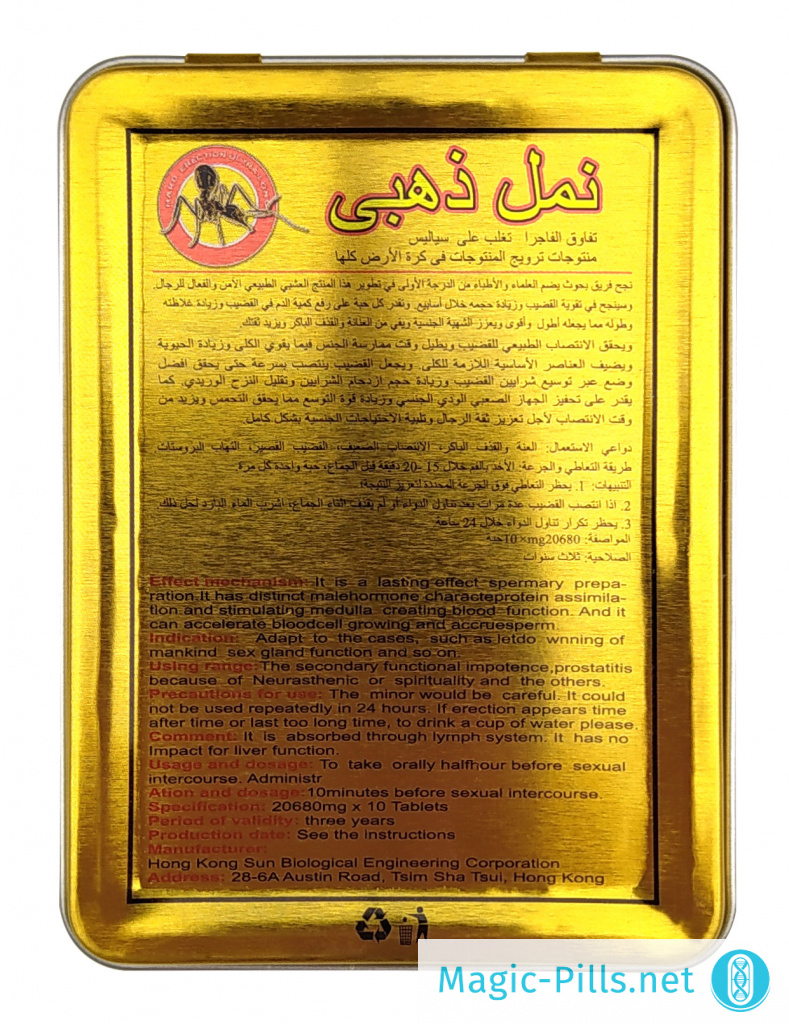 HARD ERECTION
نمل ذهبي
تفاوق الفاجرا تغلب على سياليس
منتوجات ترويج المنتوجات في كرة الأرض كلها
نجح فريق بحوث يضم العلماء والأطباء من الدرجة الأولى في تطوير هذا المنتج العشبي الطبيعي الأمن والفعال للرجال.
وسينجح في تقوية القضيب وزيادة حجمه خلال أسابيع. وتقدر كل حبة على رفع كمية الدم في القضيب وزيادة غلاظته
وطوله مما يجعله أطول وأقوى ويعزز الشهية الجنسية ويفي من العانة والقذف الباكر ويزيد ثقتك.
ويحقق الانتصاب الطبيعي للقضيب ويطيل وقت ممارسة الجنس فيما يقوي الكلى وزيادة الحيوية
ويضيف العناصر الأساسية اللازمة للكلى. ويجعل القضيب ينتصب بسرعة حتى يحقق افضل
وضع عبر توسيع شرايين القضيب وزيادة حجم ازدحام الشرايين وتقليل النزح الوريدي. كما
يقدر على تحفيز الجهاز الصعبي الودي الجنسي وزيادة قوة التوسع مما يحقق التحمس ويزيد من
وقت الانتصاب لأجل تعزيز ثقة الرجال وتلبية الاحتياجات الجنسية بشكل كامل.
دواعي الاستعمال: العنة والقذف الباكر، الانتصاب الضعيف، القضيب القصير، التهاب البروستات
طريقة التعاطي والجرعة: الأخذ بالفم خلال 15 -20 دقيقة قبل الجماع، حبة واحدة كل مرة
التنبيهات: 1. يحظر التعاطي فوق الجرعة المحددة لتعزيز النتيجة؛
2. اذا انتصب القضيب عدة مرات بعد تناول الدواء أو لم يقذف اثناء الجماع، اشرب الماء البارد لحل ذلك.
3. يحظر تكرار تناول الدواء خلال 24 ساعة
المواصفة: 20680mg×10حبة
الصلاحية: ثلاث سنوات
Effect mechanism: It is a lasting effect spermary prepa-
ration.It has distinct malehormone characteprotein assimila-
tion and stimulating medulla creating blood function. And it
can accelerate bloodcell growing and accruesperm.
Indication: Adapt to the cases, such as letdo wnning of
mankind sex gland function and so on.
Using range: The secondary functional impotence,prostatitis
because of Neurasthenic or spirituality and the others.
Precautions for use: The minor would be careful. It could
not be used repeatedly in 24 hours. If erection appears time
after time or last too long time, to drink a cup of water please.
Comment: It is absorbed through lymph system. It has no
Impact for liver function.
Usage and dosage: To take orally halfhour before sexual
intercourse. Administr
Ation and dosage:10minutes before sexual intercourse.
Specification: 20680mg x 10 Tablets
Period of validity: three years
Production date: See the instructions
Manufacturer:
Hong Kong Sun Biological Engineering Corporation
Address: 28-6A Austin Road, Tsim Sha Tsui, Hong Kong
Magic-Pills.net